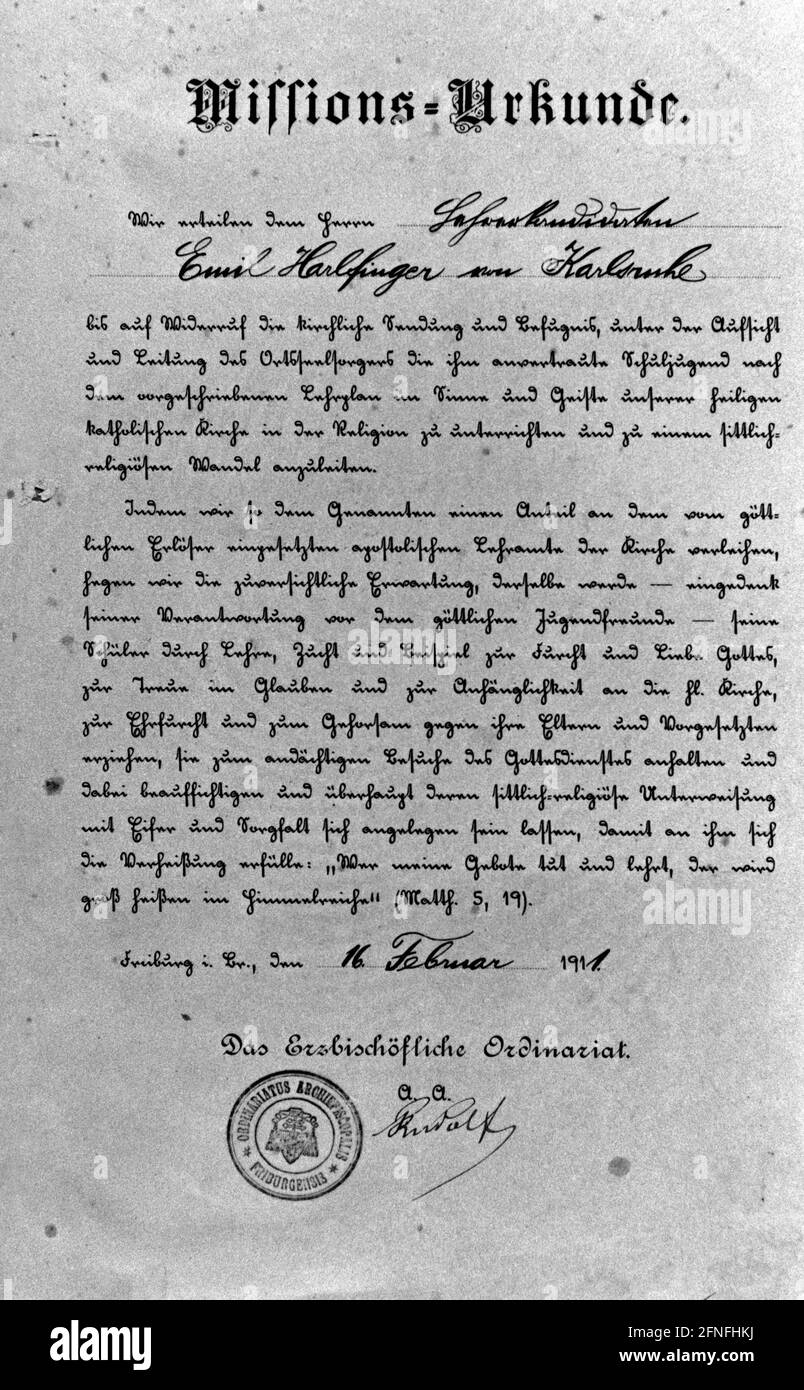 Missions-Urkunde.
Wir erteilen dem Herrn Lehrerkandidaten
Emil Harlfinger von Karlsruhe
bis auf Widerruf die kirchliche Sendung und Befugnis, unter der Aufsicht
und Leitung des Ortsseelsorgers die ihm anvertraute Schuljugend nach
dem vorgeschriebenen Lehrplan im Sinne und Geiste unserer heiligen
katholischen Kirche in der Religion zu unterrichten und zu einem sittlich-
religiösen Wandel anzuleiten.
Indem wir so dem Genannten einen Anteil an dem vom gött-
lichen Erlöser eingesetzten apostolischen Lehramte der Kirche verleihen,
hegen wir die zuversichtliche Erwartung, derselbe werde — eingedenk
seiner Verantwortung vor dem göttlichen Jugendfreunde — seine
Schüler durch Lehre, Zucht und Beispiel zur Furcht und Liebe Gottes,
zur Treue im Glauben und zur Anhänglichkeit an die hl. Kirche,
zur Ehrfurcht und zum Gehorsam gegen ihre Eltern und Vorgesetzten
erziehen, sie zum andächtigen Besuche des Gottesdienstes anhalten und
dabei beaufsichtigen und überhaupt deren sittlich-religiöse Unterweisung
mit Eifer und Sorgfalt sich angelegen sein lassen, damit an ihm sich
die Verheißung erfülle: „Wer meine Gebote tut und lehrt, der wird
groß heißen im Himmelreiche" (Matth. 5, 19).
Freiburg i. Br., den 16. Februar 1911.
Das Erzbischöfliche Ordinariat.
A. A.
Rudolf
* ORDINARIATUS ARCHIEPISCOPALIS * FRIBURGENSIS
alamy
alamy
alamy
alamy
Image ID: 2FNFHKJ
www.alamy.com